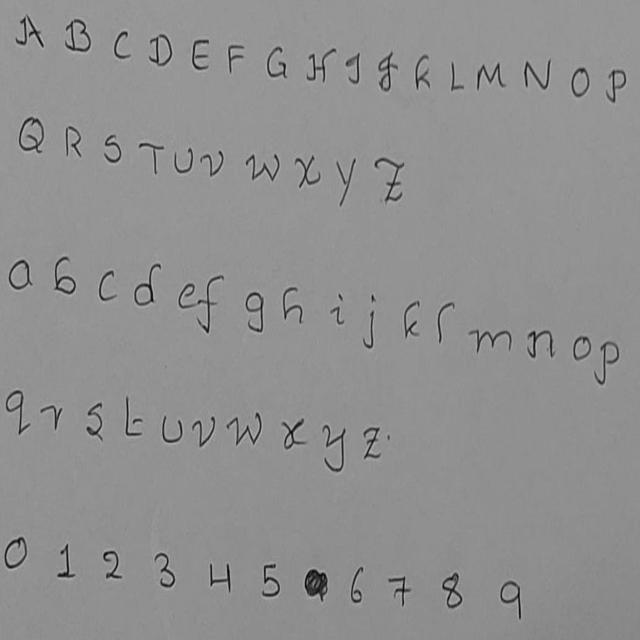 A B C D E F G H I J K L M N O P
Q R S T U V W X Y Z
a b c d e f g h i j k l m n o p
q r s t u v w x y z
0 1 2 3 4 5 6 7 8 9